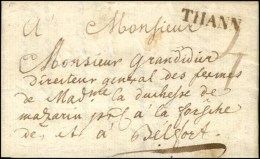 A Monsieur
THANN
Monsieur Grandidier
Directeur general des fermes
de Mad.me la duchesse de
mazarin &c.
à la forge
de et à Belfort.